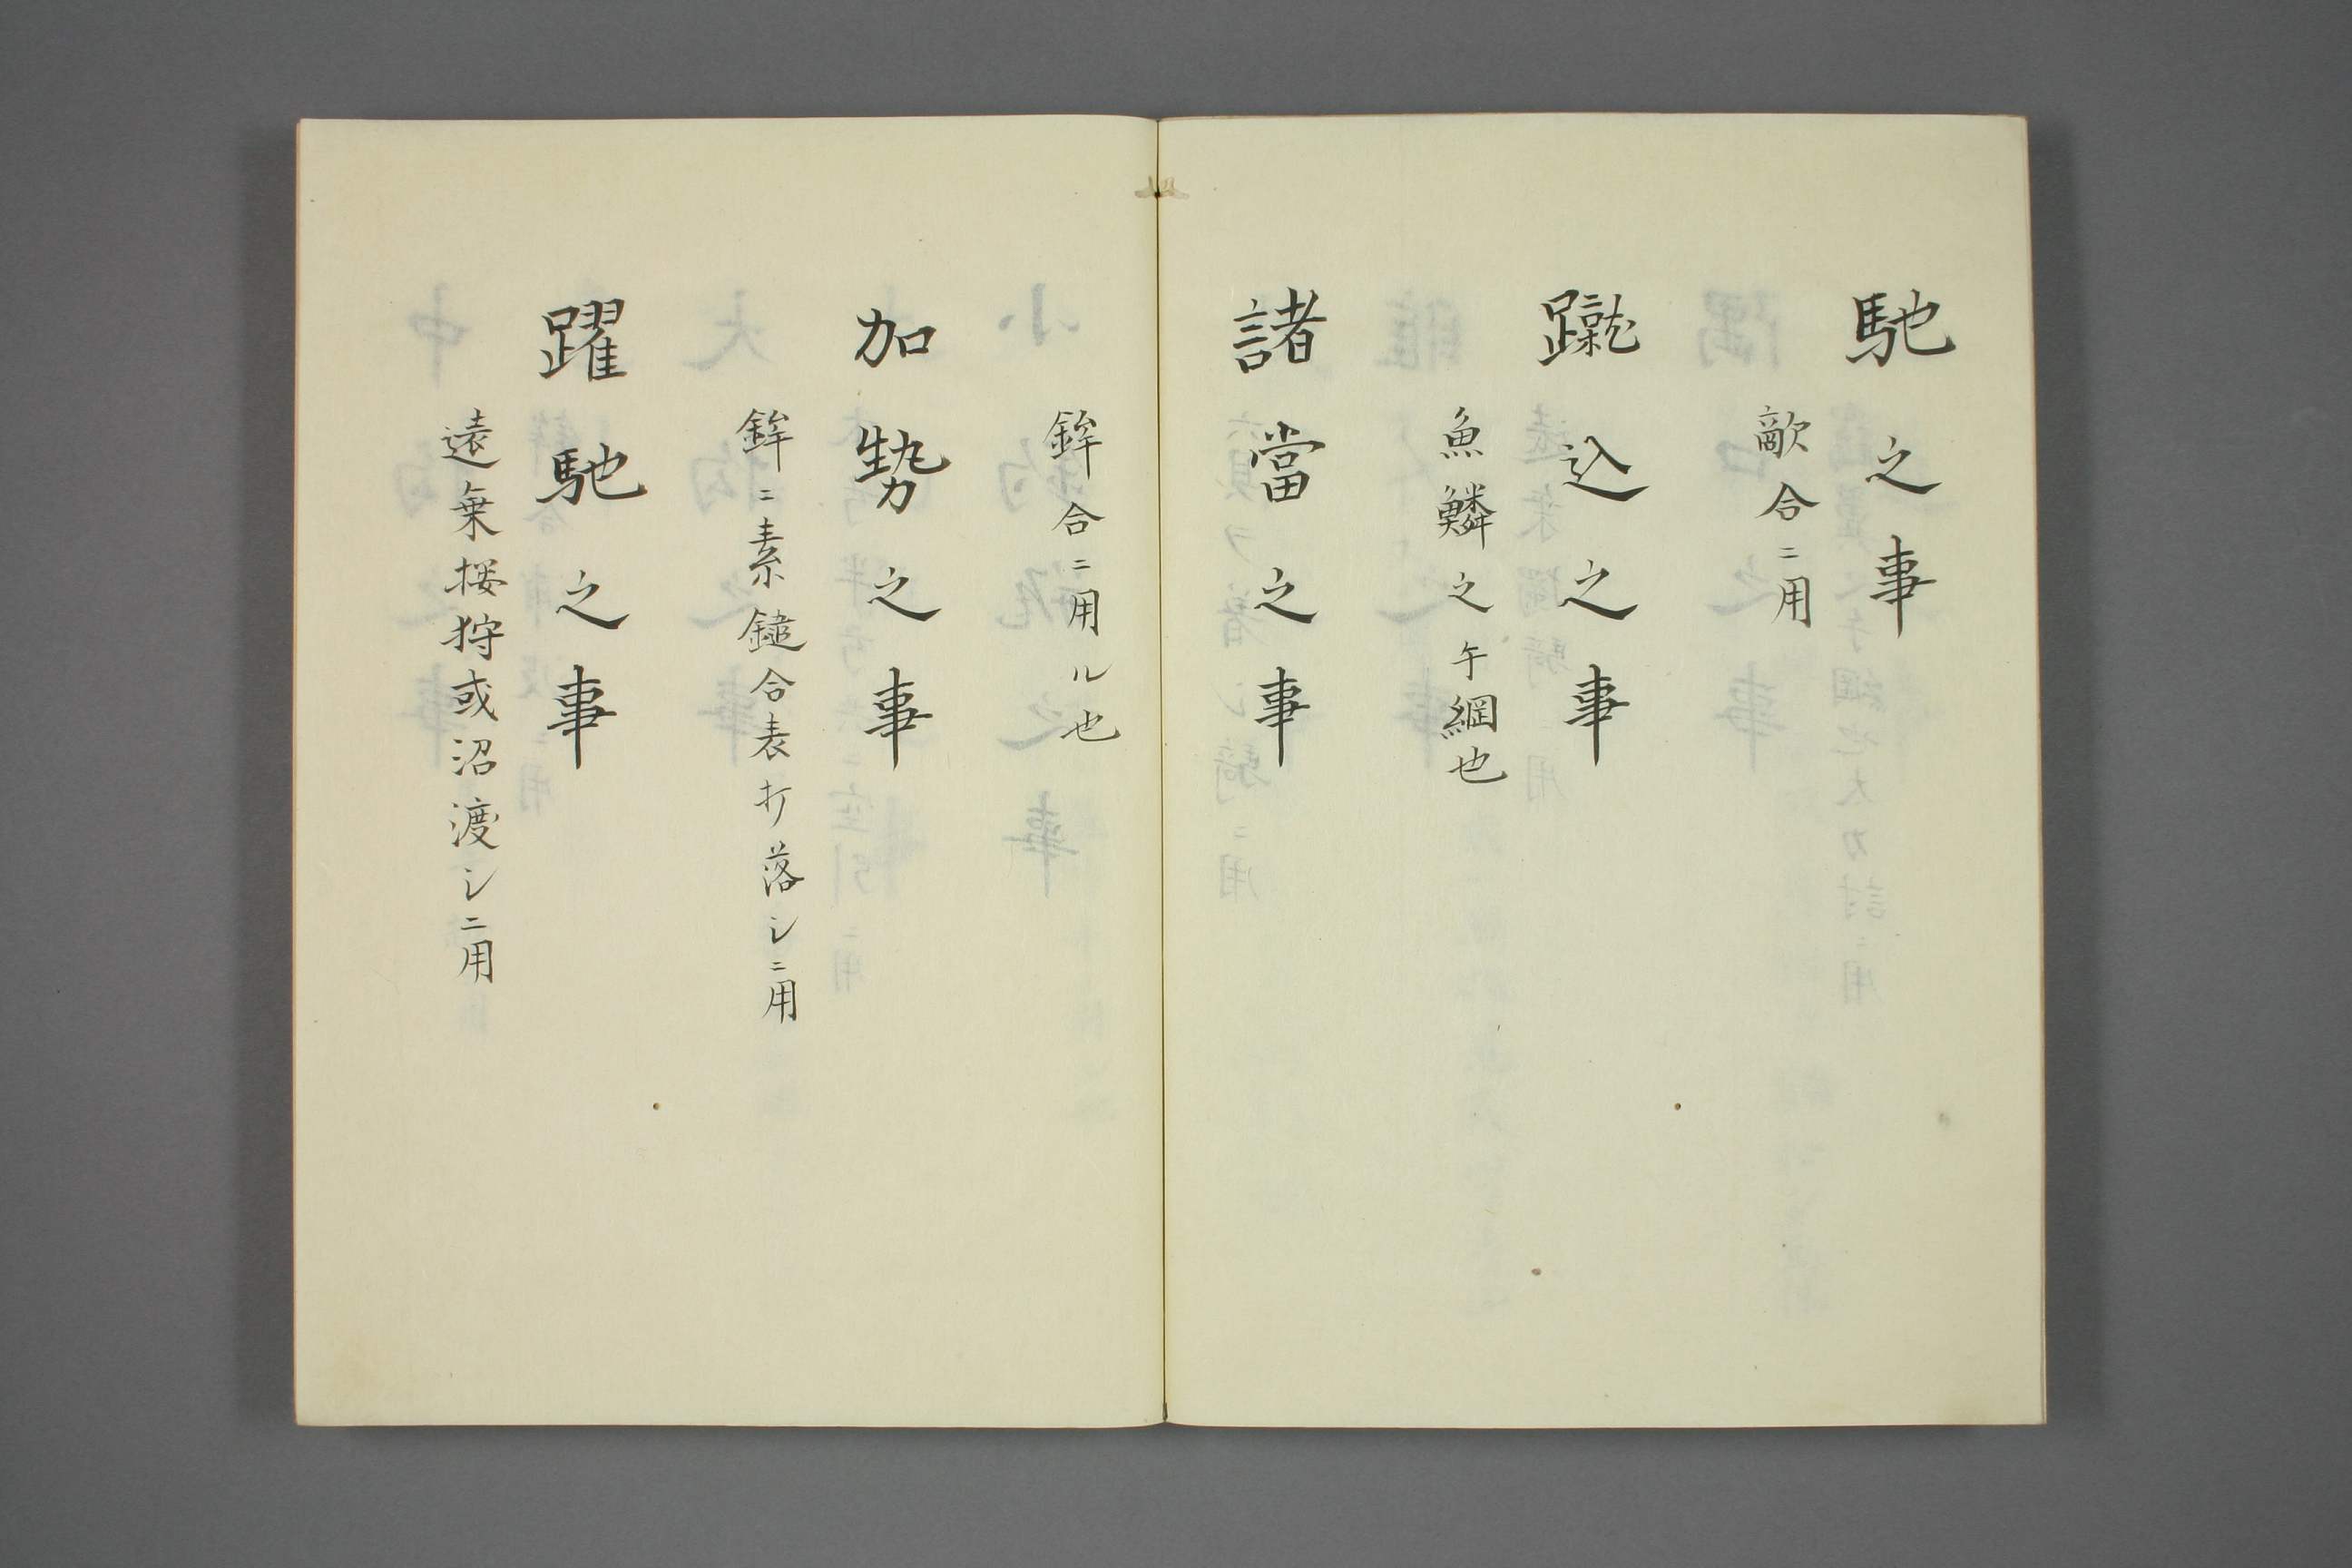 馳之事
敵合ニ用
蹴込之事
魚鱗之手綱也
諸當之事
鉾合ニ用ル也
加勢之事
鉾ニ素鑓合表打落シニ用
躍馳之事
遠乗桜狩或沼渡シニ用